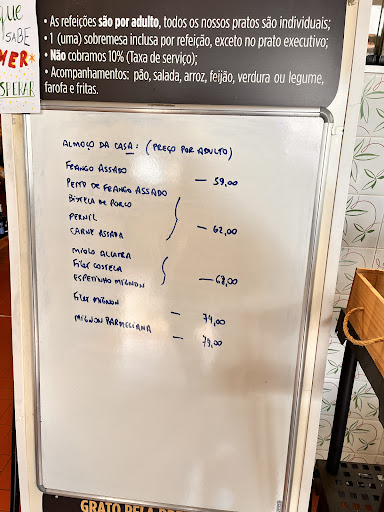 que
SABE
MER*
SPERAR
• As refeições são por adulto, todos os nossos pratos são individuais;
• 1 (uma) sobremesa inclusa por refeição, exceto no prato executivo;
• Não cobramos 10% (Taxa de serviço);
• Acompanhamentos: pão, salada, arroz, feijão, verdura ou legume,
farofa e fritas.
ALMOÇO DA CASA: (PREÇO POR ADULTO)
FRANGO ASSADO
PEITO DE FRANGO ASSADO — 59,00
BISTECA DE PORCO
PERNIL
CARNE ASSADA — 62,00
MIOLO ALCATRA
FILÉ COSTELA
ESPETINHO MIGNON — 68,00
FILÉ MIGNON — 74,00
MIGNON PARMEGIANA — 79,00
GRATO PELA